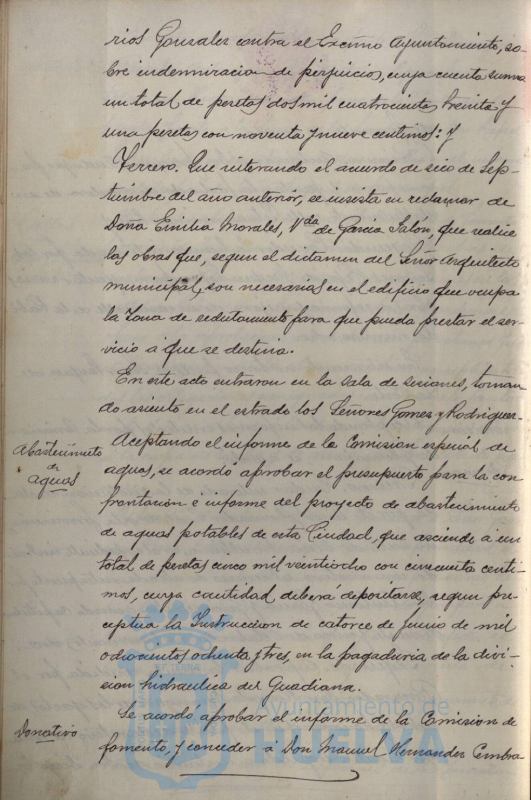 rios Gonzalez contra el Excmo Ayuntamiento, so-
bre indemnizacion de perjuicios, cuya cuenta suma
un total de pesetas dos mil cuatrocientas treinta y
una pesetas con noventa y nueve centimos: y
Tercero. Que reiterando el acuerdo de seis de Sep-
tiembre del año anterior, se insista en reclamar de
Doña Emilia Morales, Vda de Garcia Salón, que realice
las obras que, segun el dictamen del Señor Arquitecto
municipal, son necesarias en el edificio que ocupa
la Zona de reclutamiento para que pueda prestar el ser-
vicio á que se destina.
En este acto entraron en la sala de sesiones, toman-
do asiento en el estrado los Señores Gomez y Rodriguez.
Abastecimiento
de
aguas
Aceptando el informe de la Comision especial de
aguas, se acordó aprobar el presupuesto para la con-
frontacion é informe del proyecto de abastecimiento
de aguas potables de esta Ciudad, que asciende á un
total de pesetas cinco mil veintiocho con cincuenta centi-
mos, cuya cantidad deberá depositarse, segun pre-
ceptua la Instruccion de catorce de Junio de mil
ochocientos ochenta y tres, en la pagaduria de la divi-
sion hidraulica del Guadiana.
Donativo
Se acordó aprobar el informe de la Comision de
fomento, y conceder á Don Manuel Hernandez Cembra-
Ayuntamiento de
HUELVA